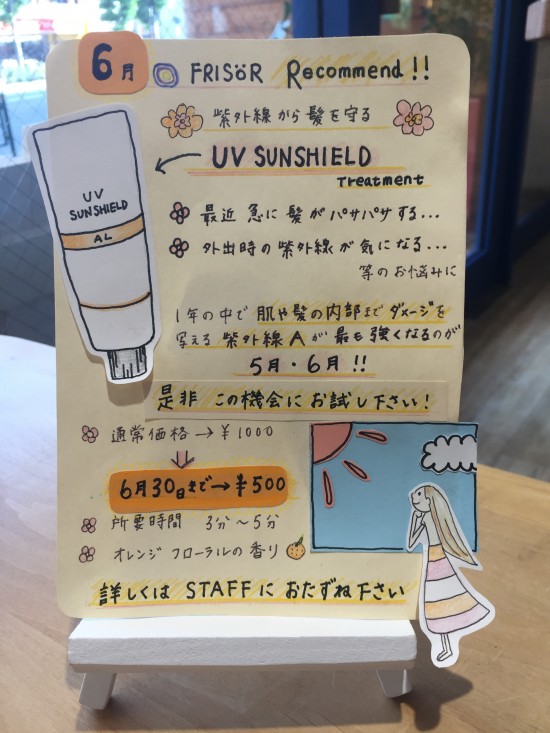 6月 FRISöR Recommend!!
紫外線から髪を守る
UV SUNSHIELD
Treatment
UV
SUNSHIELD
AL
最近 急に 髪が パサパサする...
外出時の紫外線が 気になる...
等のお悩みに
1年の中で 肌や髪の内部まで ダメージを
与える 紫外線Aが 最も強くなるのが
5月・6月!!
是非 この機会に お試し下さい!
通常価格→¥1000
6月30日まで→¥500
所要時間 3分〜5分
オレンジ フローラルの香り
詳しくは STAFFに おたずね下さい